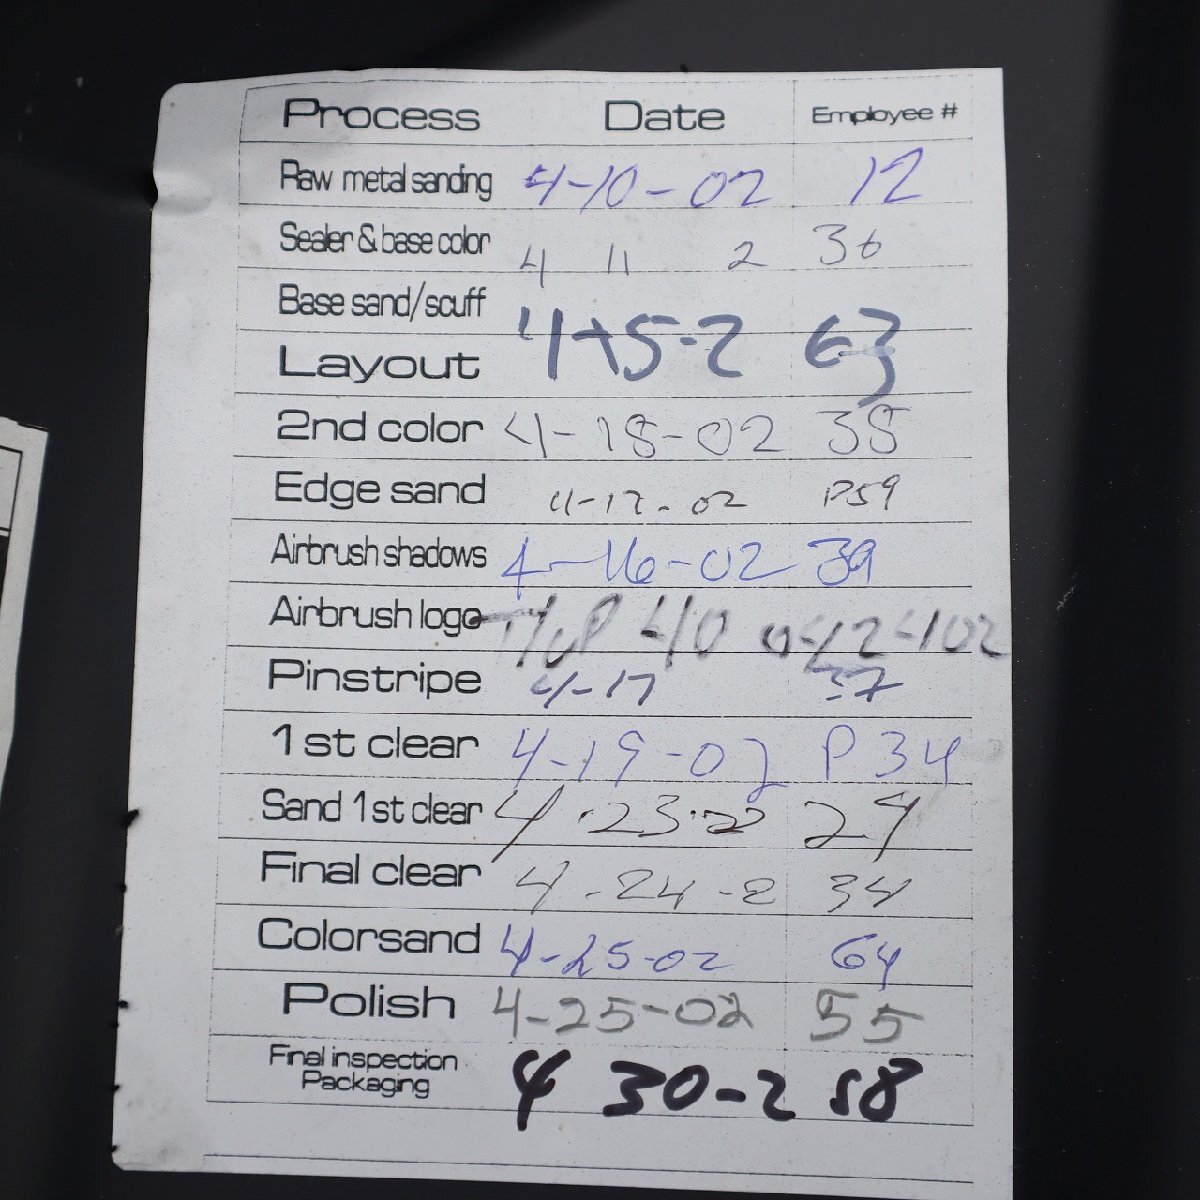 Process Date Employee #
Raw metal sanding 4-10-02 12
Sealer & base color 4 11 2 36
Base sand/scuff
4-15-2 63
Layout
2nd color 4-18-02 38
Edge sand 4-17-02 P59
Airbrush shadows 4-16-02 39
Airbrush logo
Pinstripe 4-17 37
1st clear 4-19-02 P34
Sand 1st clear 4-23-02 29
Final clear 4-24-2 34
Colorsand 4-25-02 64
Polish 4-25-02 55
Final inspection
Packaging 4 30-2 58